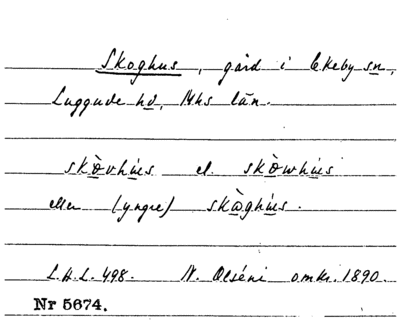 Skoghus, gård i Ekeby sn,
Luggude hd, Mhs län.
skòvhús el. skòwhús
eller (yngre) skàghús.
L.H.L. 498. N. Olséni omkr. 1890.
Nr 5674.